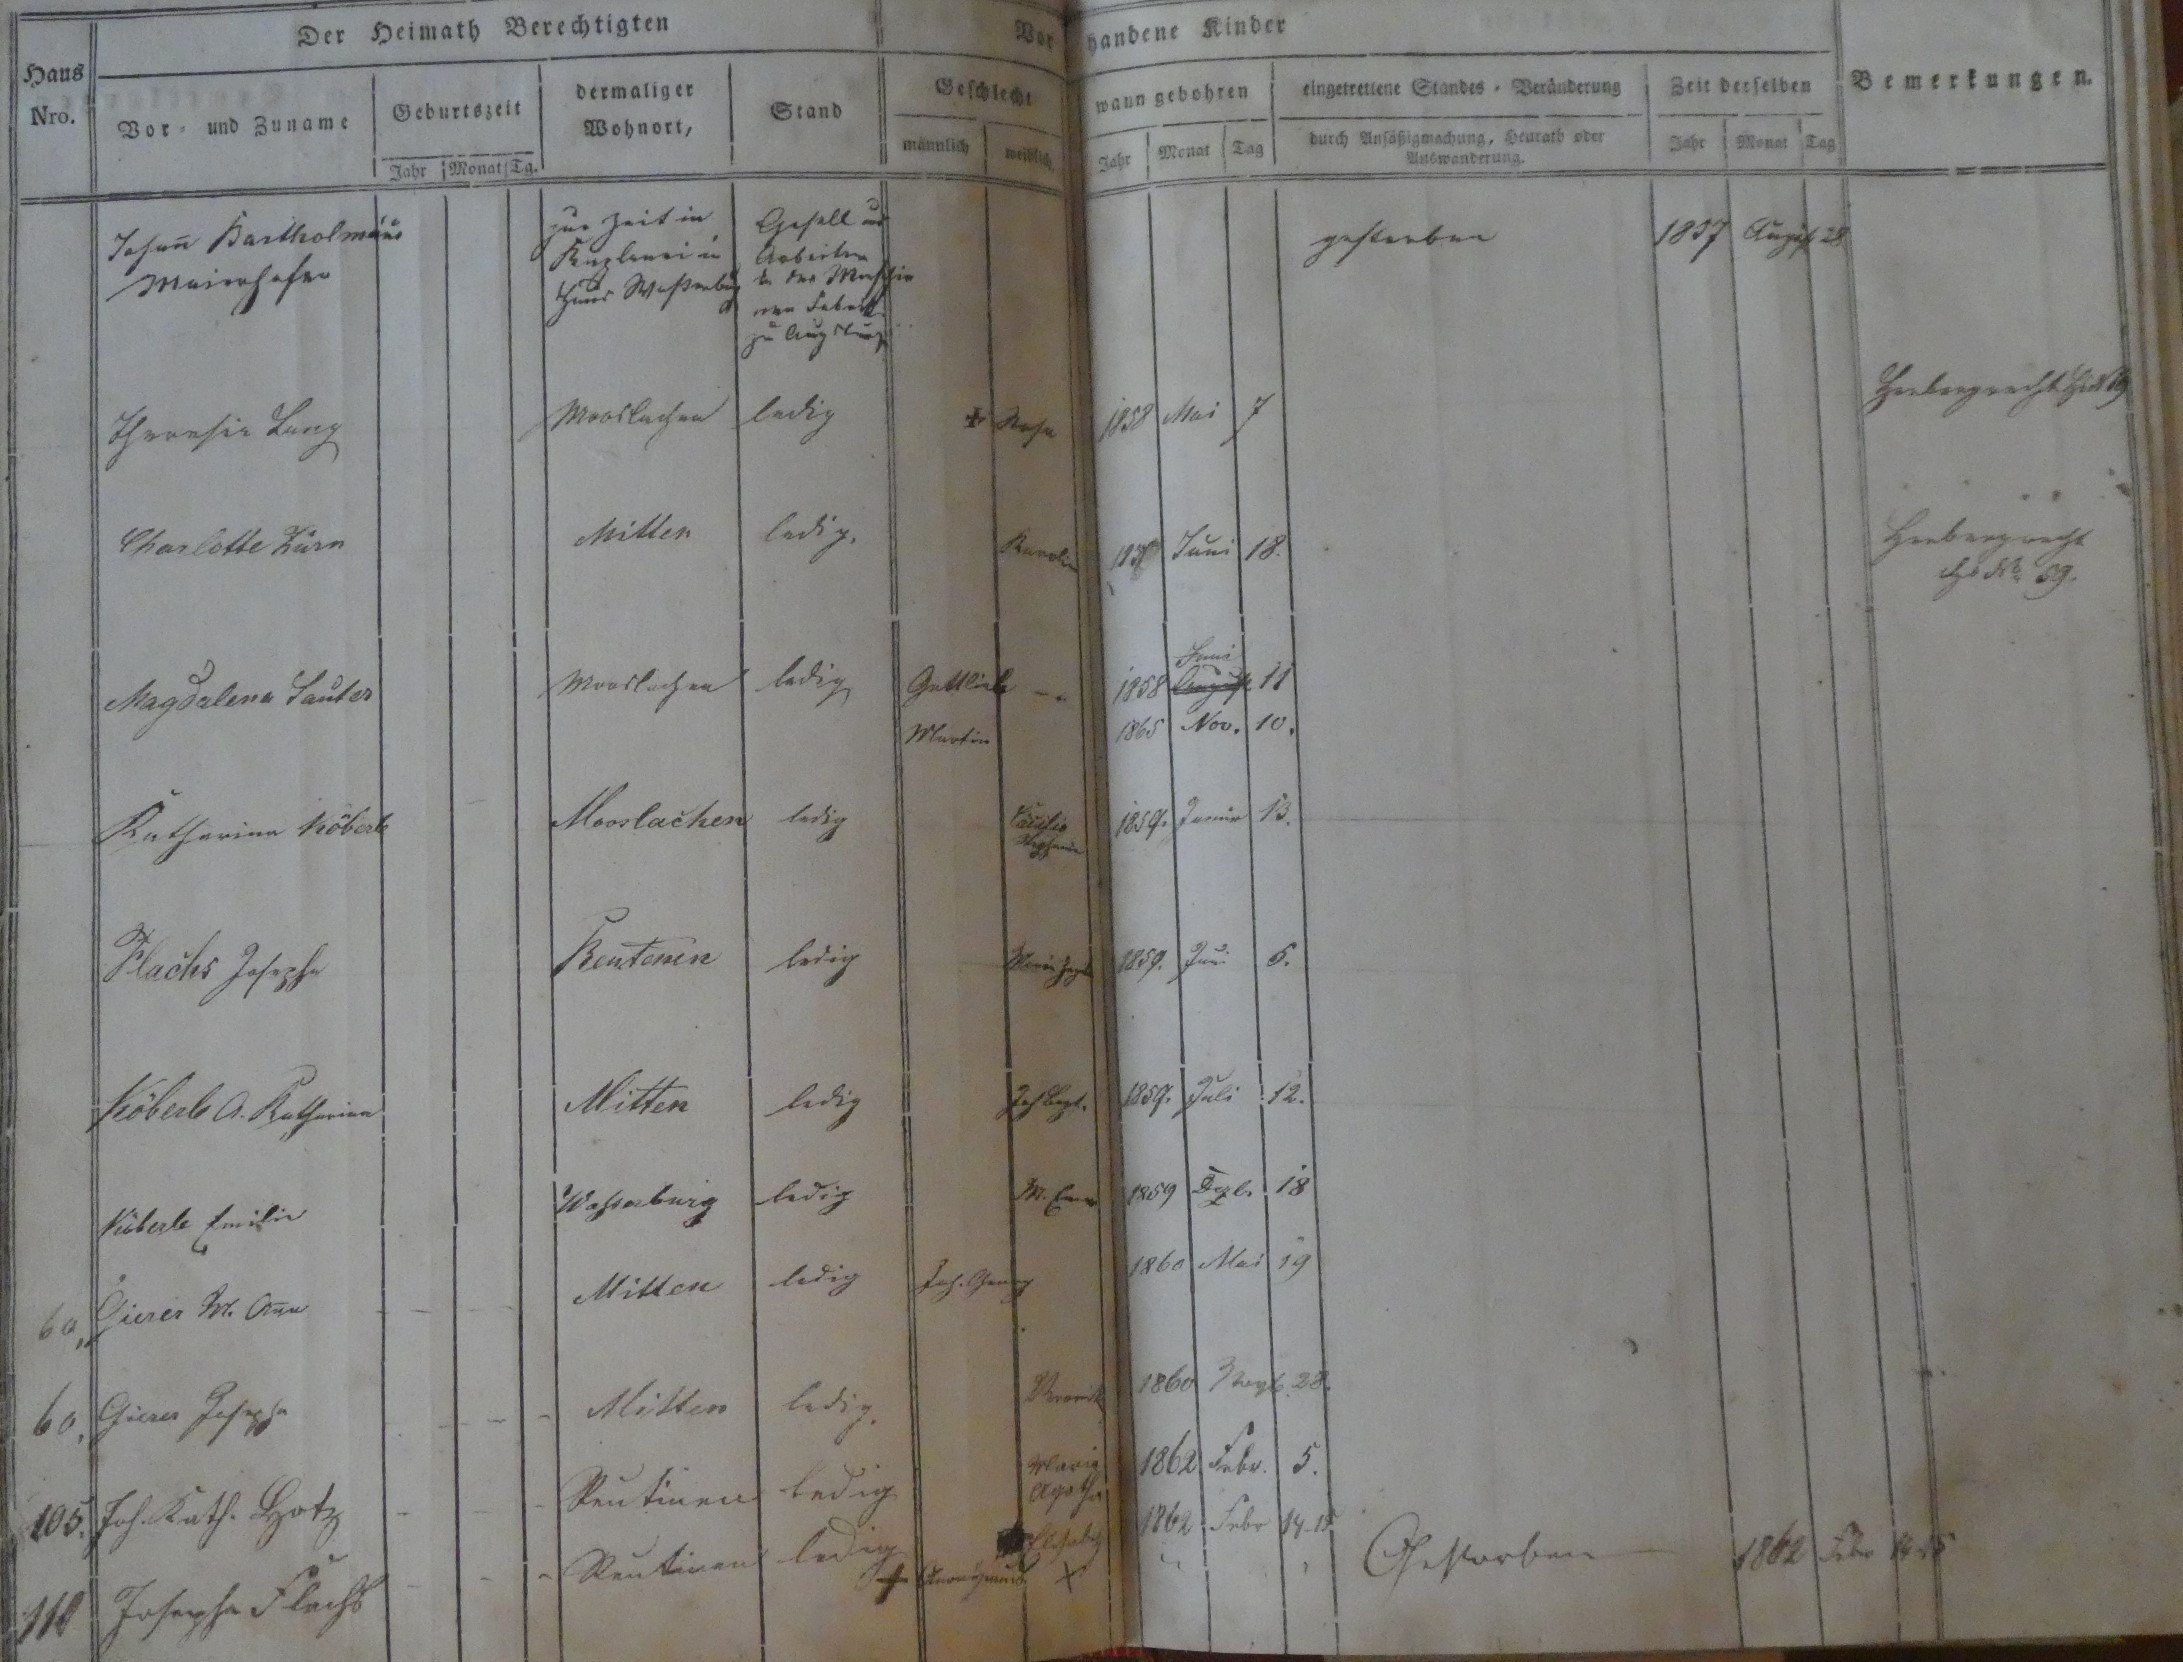 Der Heimath Berechtigten
Vorhandene Kinder
Haus Nro.
Vor- und Zuname
Geburtszeit
Jahr Monat Tg.
dermaliger Wohnort,
Stand
Geschlecht
männlich weiblich
wann gebohren
Jahr Monat Tag
eingetrettene Standes-Veränderung
durch Ansäßigmachung, Heurath oder
Auswanderung.
Zeit derselben
Jahr Monat Tag
Bemerkungen.
Johann Bartholmäus
Maierhofer
zur Zeit in
Gesell und
Arbeiter
in der Maschin
nen Fabrik
zu Augsburg
gestorben 1857 August 28
Theresia Lang Mooslachen ledig + Rosa 1858 Mai 7
Charlotte Zürn Mitten ledig. Karolin Juni 18.
Magdalena Sauter Mooslachen ledig Gottlieb 1858 Juni 11
Martin 1865 Nov. 10.
Katharina Köberle Mooslachen ledig Cäcilia Stephania 1859. Januar 13.
Flachs Josepha Reutenen ledig 1859. Juni 6.
Köberle A. Katharina Mitten ledig 1859. Juli 12.
Köberle Emilie Wasserburg ledig M. Emma 1859 Dezb. 18
60, Gierer M. Anna Mitten ledig Joh. Georg 1860 Mai 19
60, Gierer Josepha Mitten ledig. 1860 28.
105. Joh. Kath. Hotz Reutinen ledig Maria Agatha 1862 Febr. 5.
110 Josepha Flachs Reutinen ledig Elisabeth 1862 Febr 14-15
+ Gestorben 1862 Febr 14-15